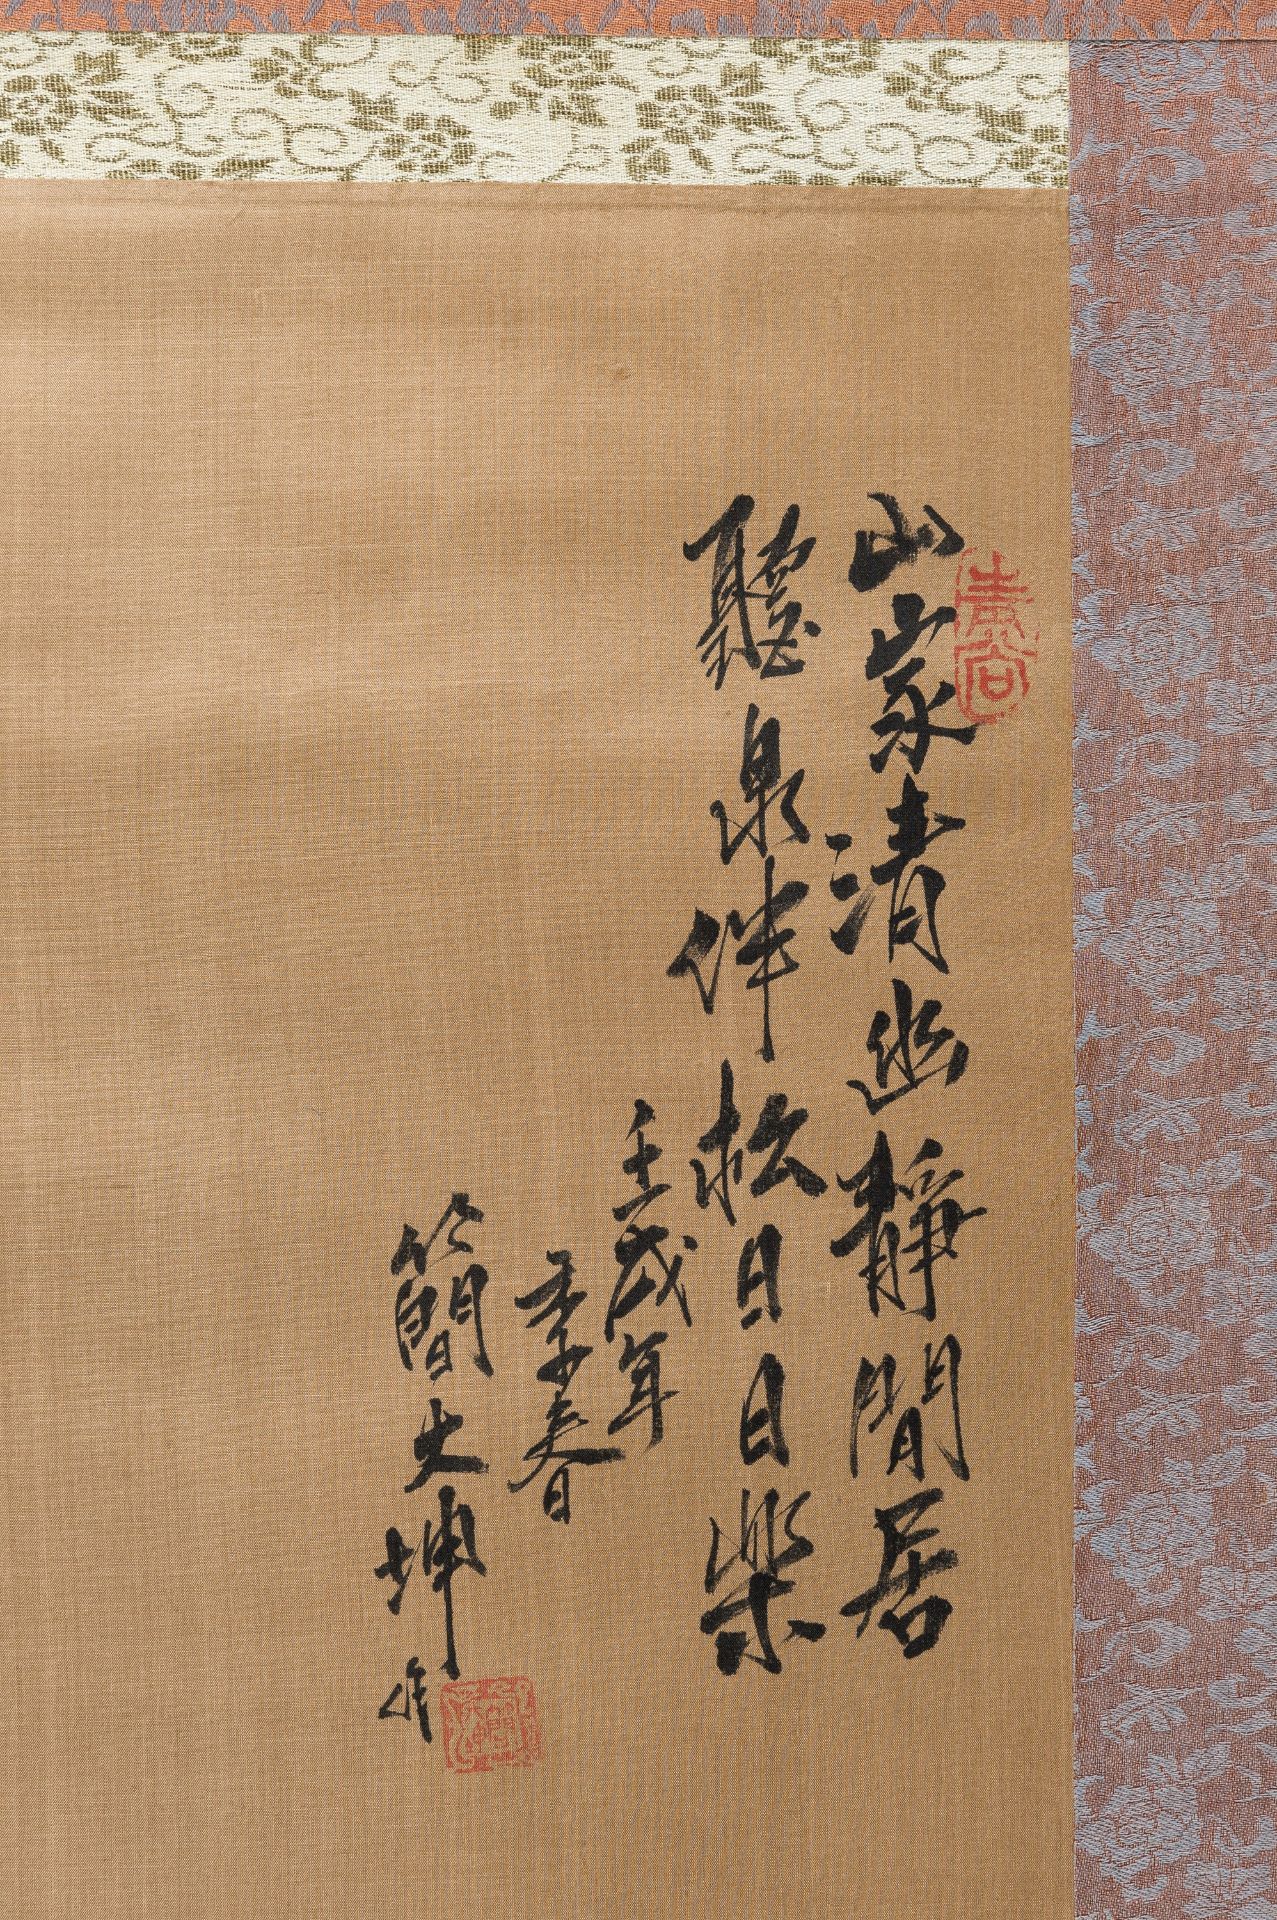 山家清幽靜閒居
聽泉伴松日日樂
壬戌年
季春
簡大坤作